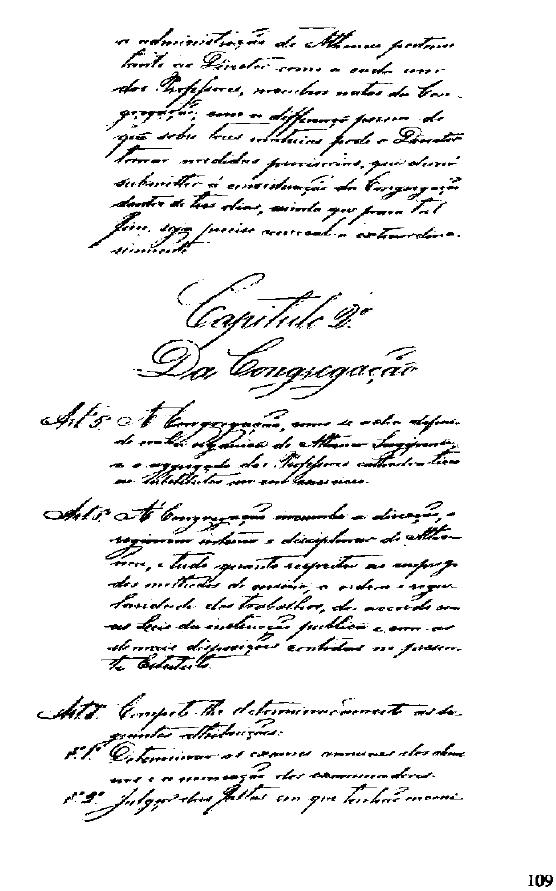 a administração do Atheneu pertence
tanto ao Director como a cada um
dos Professores, membros natos da Con-
gregação; com a differença porem de
que sobre taes materias pode o Director
tomar medidas provisorias, que deverá
submetter á consideração da Congregação
dentro de tres dias, ainda que para tal
fim seja preciso convocal-a extraordina-
riamente
Capitulo 2º
Da Congregação
Artº 5º A Congregação, como se acha
de na Lei organica do Atheneu Sergipense,
e o aggregado dos Professores cathedraticos
ou substitutos em
Artº 6º A' Congregação incumbe a direcção, o
regimem interno e disciplinar do Athe-
neu, e tudo quanto respeitar ao emprego
dos methodos de ensino, a ordem e regu-
laridade dos trabalhos, de accordo com
as Leis da instrucção publica e com as
demais disposições contidas no presen-
te Estatuto.
Artº 7º Compete-lhe determinadamente as se-
guintes attribuições:
§º 1º Determinar os exames annuaes dos alum
nos e a nomeação dos examinadores.
§º 2º Julgar das faltas em que tenhão
109